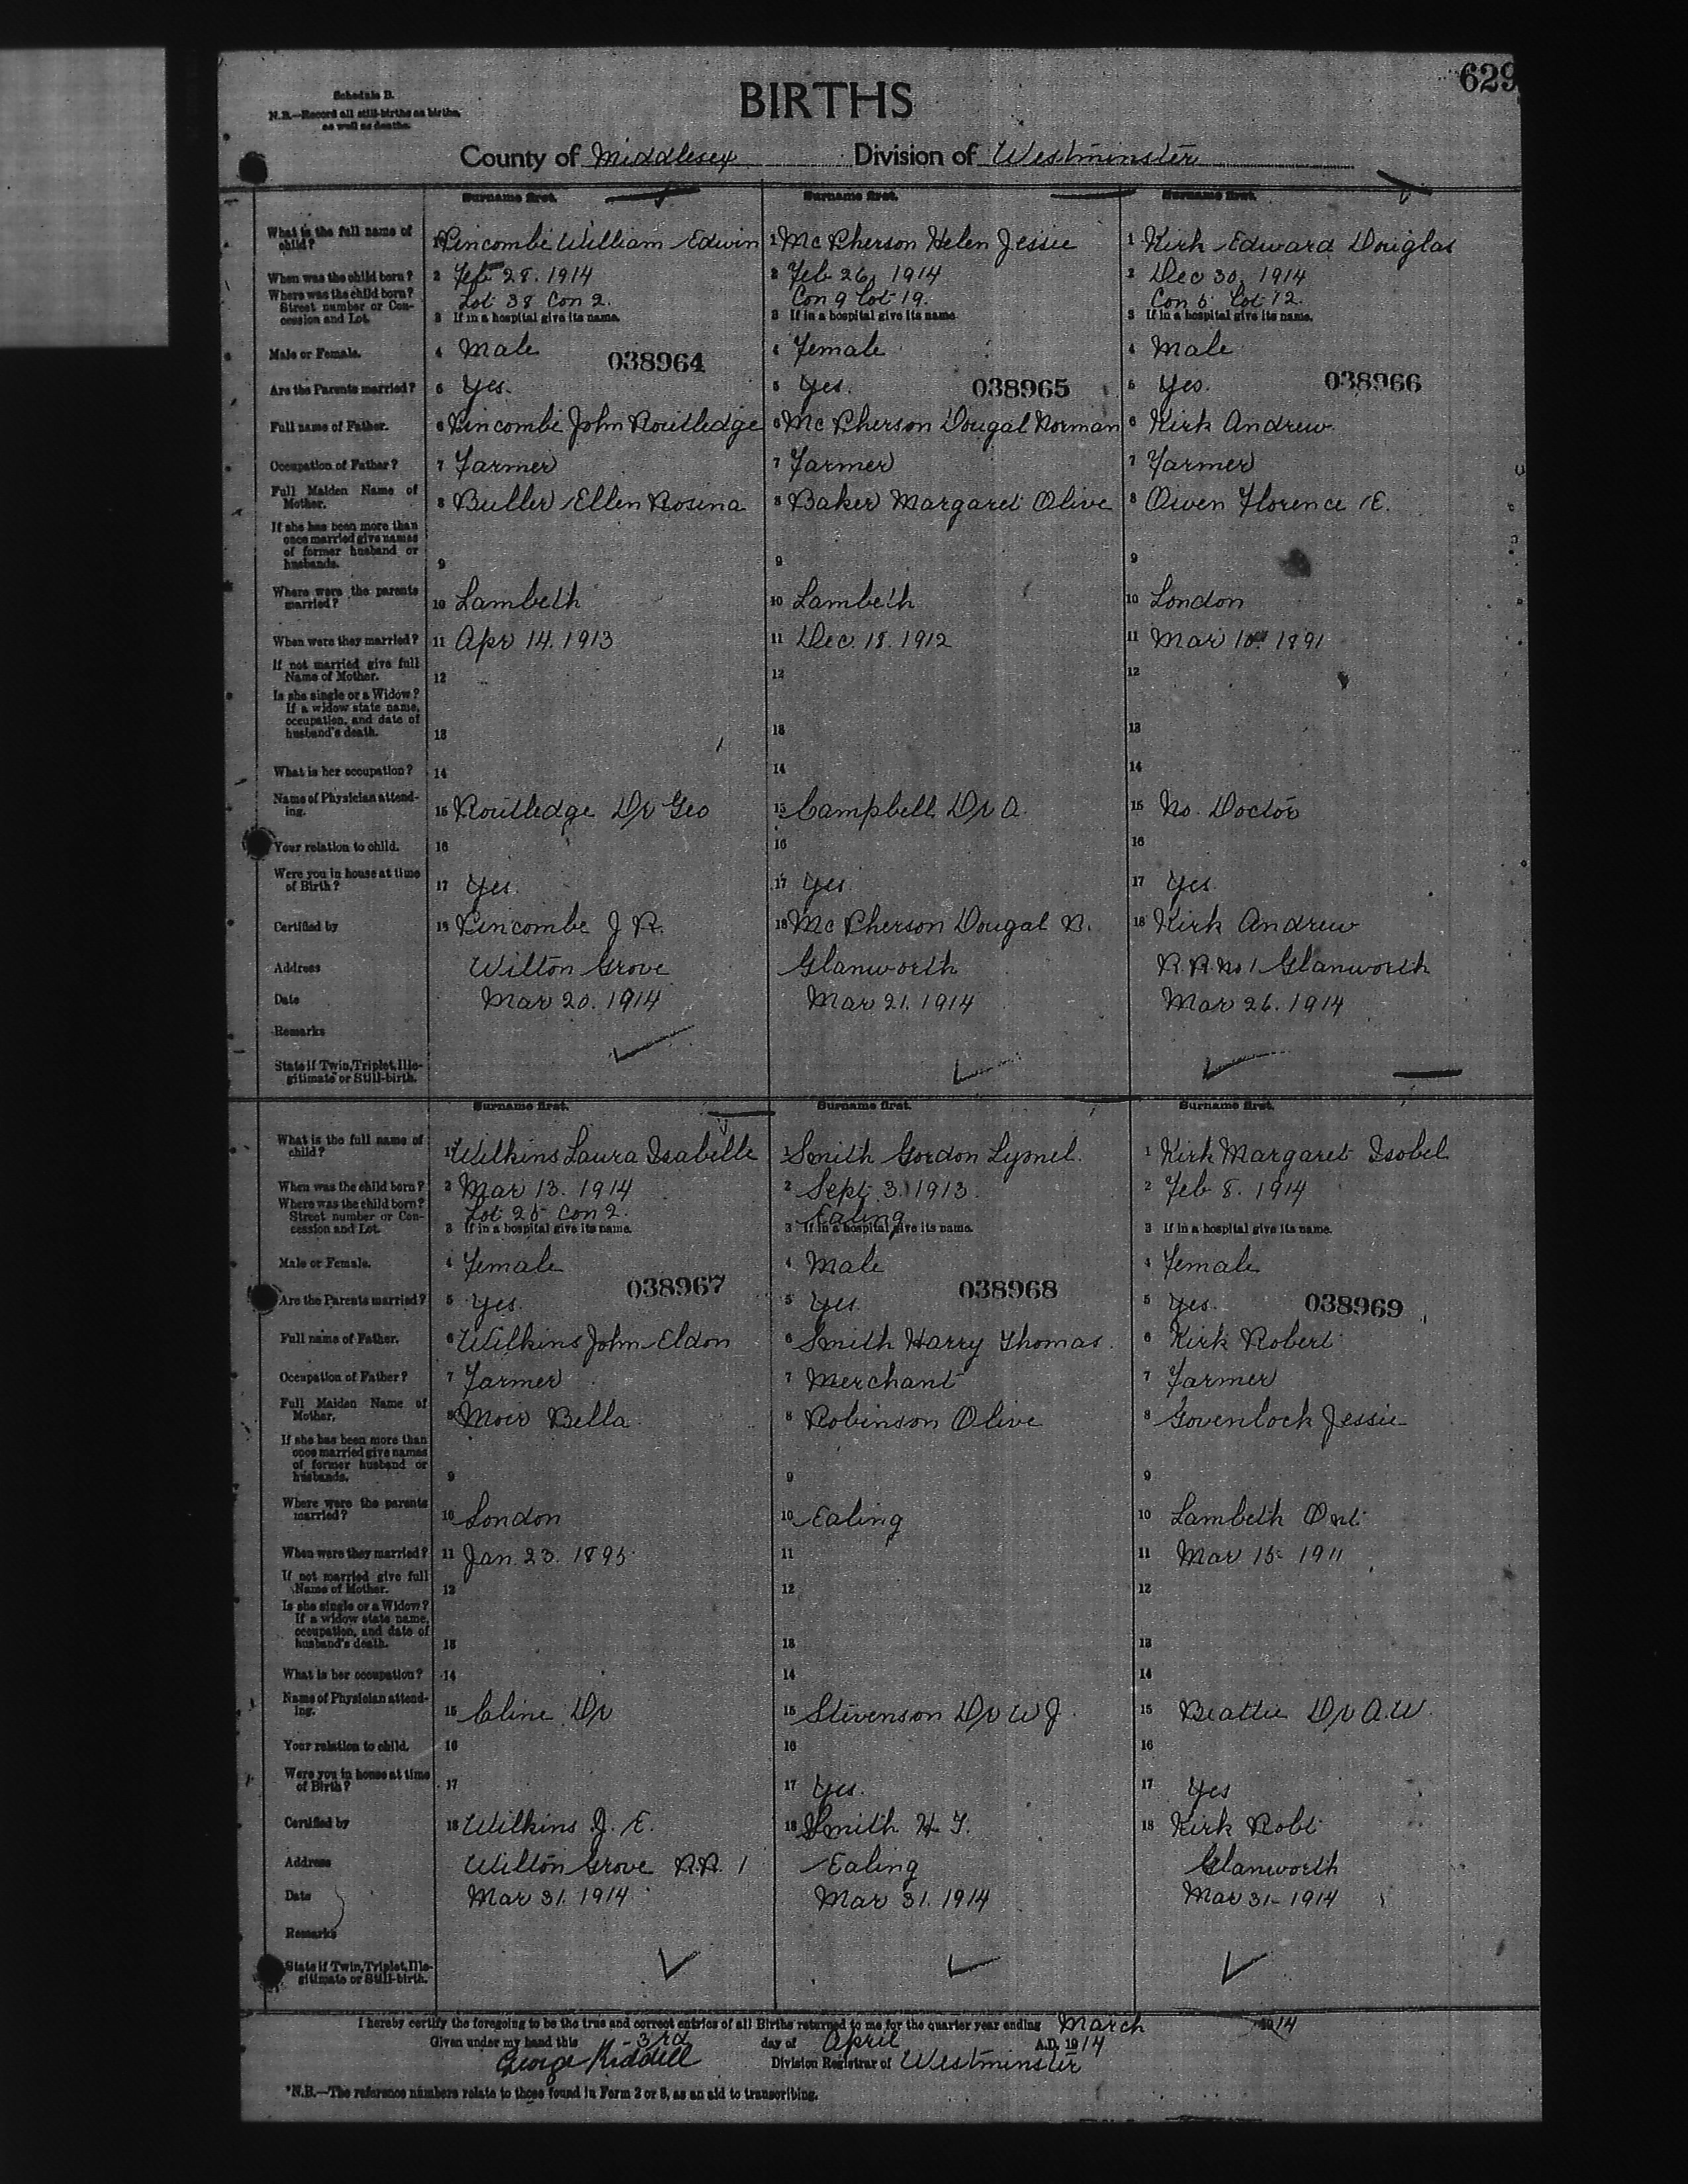 629
Schedule B.
N.B.—Record all still-births as births, as well as deaths.
BIRTHS
County of Middlesex Division of Westminster
Surname first. Surname first. Surname first.
What is the full name of child? 1 Pincombe William Edwin 1 Mc Pherson Helen Jessie 1 Kirk Edward Douglas
When was the child born? 2 Feb 28. 1914 2 Feb 26, 1914 2 Dec 30, 1914
Where was the child born? Lot 38 Con 2. Con 9 Lot 19. Con 5 Lot 12.
Street number or Concession and Lot. 3 If in a hospital give its name. 3 If in a hospital give its name 3 If in a hospital give its name.
Male or Female. 4 Male 4 Female 4 Male
038964 038965 038966
Are the Parents married? 5 Yes. 5 Yes. 5 Yes.
Full name of Father. 6 Pincombe John Routledge 6 Mc Pherson Dougal Norman 6 Kirk Andrew
Occupation of Father? 7 Farmer 7 Farmer 7 Farmer
Full Maiden Name of Mother. 8 Buller Ellen Rosina 8 Baker Margaret Olive 8 Owen Florence E.
If she has been more than once married give names of former husband or husbands. 9 9 9
Where were the parents married? 10 Lambeth 10 Lambeth 10 London
When were they married? 11 Apr 14. 1913 11 Dec. 18. 1912 11 Mar 10 1891
If not married give full Name of Mother. 12 12 12
Is she single or a Widow? If a widow state name, occupation, and date of husband's death. 13 13 13
What is her occupation? 14 14 14
Name of Physician attending. 15 Routledge Dr Geo 15 Campbell Dr A. 15 No Doctor
Your relation to child. 16 16 16
Were you in house at time of Birth? 17 Yes. 17 Yes 17 Yes
Certified by 18 Pincombe J R. 18 Mc Pherson Dougal N. 18 Kirk Andrew
Address Wilton Grove Glanworth R.R. No 1 Glanworth
Date Mar 20. 1914 Mar 21. 1914 Mar 26. 1914
Remarks
State if Twin, Triplet, Illegitimate or Still-birth.
Surname first. Surname first. Surname first.
What is the full name of child? 1 Wilkins Laura Isabelle 1 Smith Gordon Lyonel. 1 Kirk Margaret Isobel
When was the child born? 2 Mar 13. 1914 2 Sept 3. 1913 2 Feb 8. 1914
Where was the child born? Lot 25 Con 2. Ealing
Street number or Concession and Lot. 3 If in a hospital give its name. 3 If in a hospital give its name. 3 If in a hospital give its name.
Male or Female. 4 Female 4 Male 4 Female
038967 038968 038969
Are the Parents married? 5 Yes. 5 Yes 5 Yes.
Full name of Father. 6 Wilkins John Eldon 6 Smith Harry Thomas. 6 Kirk Robert
Occupation of Father? 7 Farmer 7 Merchant 7 Farmer
Full Maiden Name of Mother. 8 Moir Bella 8 Robinson Olive 8 Govenlock Jessie
If she has been more than once married give names of former husband or husbands. 9 9 9
Where were the parents married? 10 London 10 Ealing 10 Lambeth Ont
When were they married? 11 Jan. 23. 1895 11 11 Mar 15 1911
If not married give full Name of Mother. 12 12 12
Is she single or a Widow? If a widow state name, occupation, and date of husband's death. 13 13 13
What is her occupation? 14 14 14
Name of Physician attending. 15 Cline Dr 15 Stevenson Dr W J. 15 Beattie Dr A.W.
Your relation to child. 16 16 16
Were you in house at time of Birth? 17 17 Yes. 17 Yes
Certified by 18 Wilkins J. E. 18 Smith H. T. 18 Kirk Robt
Address Wilton Grove R.R. 1 Ealing Glanworth
Date Mar 31. 1914 Mar 31. 1914 Mar 31- 1914
Remarks
State if Twin, Triplet, Illegitimate or Still-birth.
I hereby certify the foregoing to be the true and correct entries of all Births returned to me for the quarter year ending March 1914
Given under my hand this 3rd day of April A.D. 1914
George Riddell Division Registrar of Westminster
*N.B.—The reference numbers relate to those found in Form 2 or 3, as an aid to transcribing.